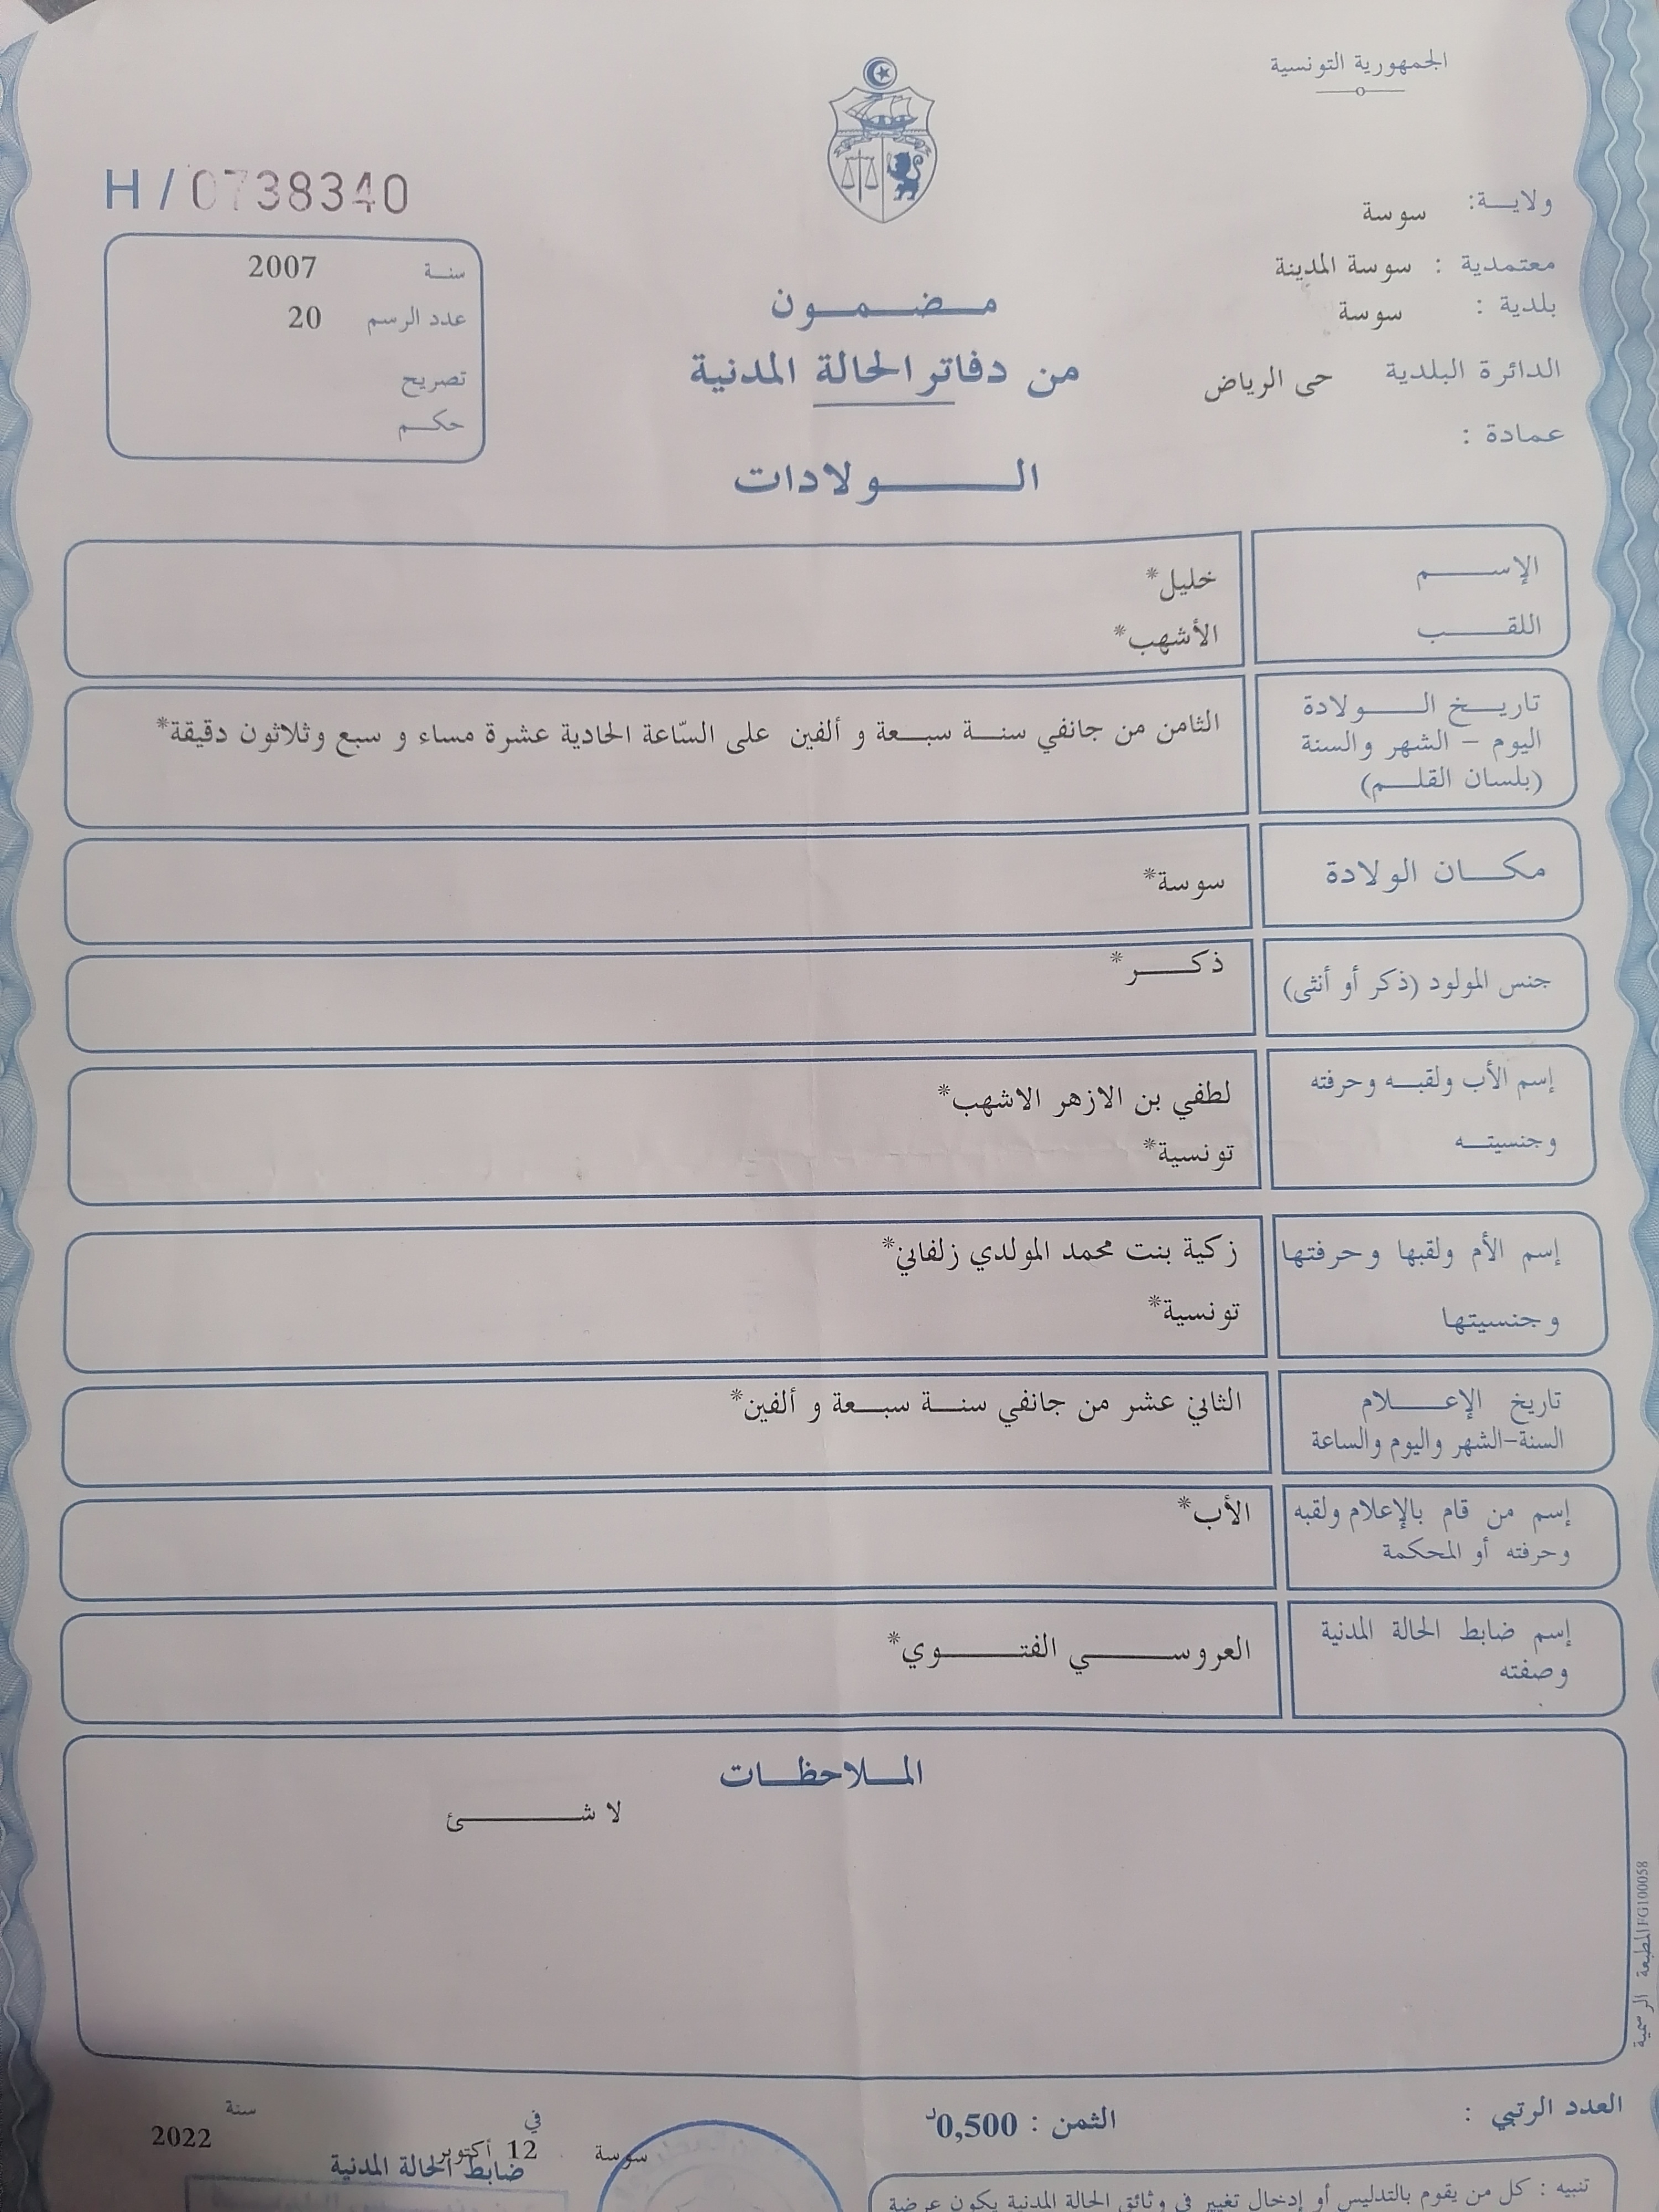 الجمهورية التونسية
ولاية: سوسة
معتمدية : سوسة المدينة
بلدية : سوسة
الدائرة البلدية حى الرياض
عمادة :
H / 0738340
سنة 2007
عدد الرسم 20
تصريح
حكم
مضمون
من دفاتر الحالة المدنية
الولادات
الإسم خليل*
اللقب الأشهب*
تاريخ الولادة
اليوم - الشهر والسنة
(بلسان القلم)
الثامن من جانفي سنة سبعة و ألفين على السّاعة الحادية عشرة مساء و سبع وثلاثون دقيقة*
مكان الولادة سوسة*
جنس المولود (ذكر أو أنثى) ذكر*
إسم الأب ولقبه وحرفته لطفي بن الازهر الاشهب*
وجنسيته تونسية*
إسم الأم ولقبها وحرفتها زكية بنت محمد المولدي زلفاني*
وجنسيتها تونسية*
تاريخ الإعلام الثاني عشر من جانفي سنة سبعة و ألفين*
السنة-الشهر واليوم والساعة
إسم من قام بالإعلام ولقبه الأب*
وحرفته أو المحكمة
إسم ضابط الحالة المدنية العروسي الفتوي*
وصفته
الملاحظات
لا شئ
المطبعة الرسمية FG100058
العدد الرتبي :
الثمن : 0,500د
سوسة في 12 أكتوبر سنة 2022
ضابط الحالة المدنية
تنبيه : كل من يقوم بالتدليس أو إدخال تغيير في وثائق الحالة المدنية يكون عرضة